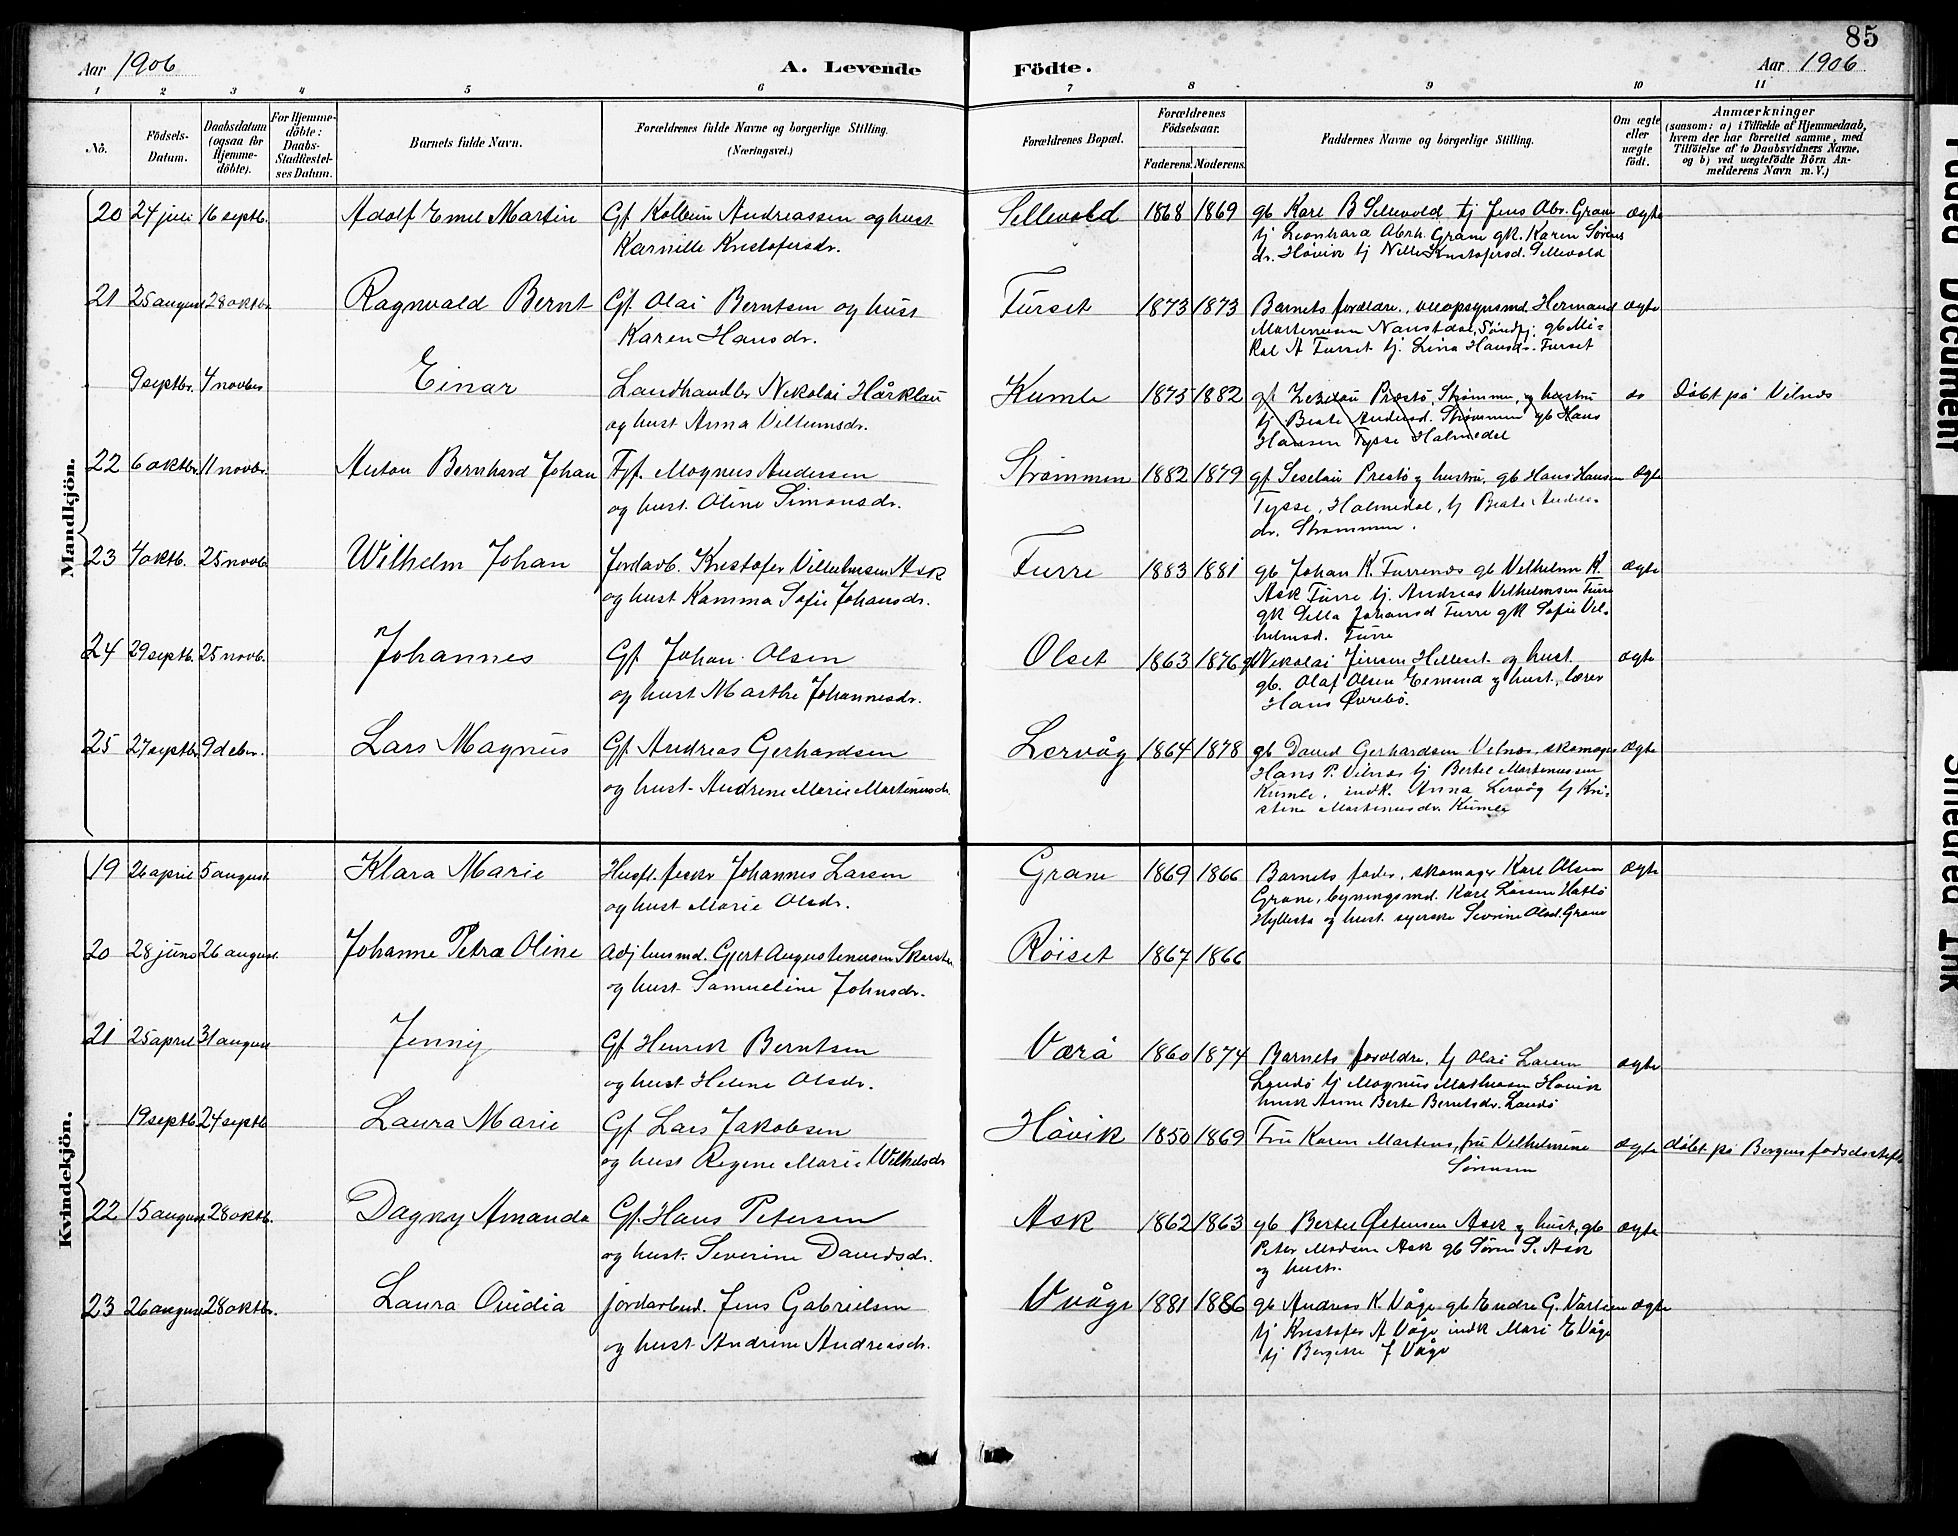 85
Aar 1906
A. Levende
Födte.
Aar 1906
1 2 3 4 5 6 7 8 9 10 11
Nô.
Födsels-
Datum.
Daabsdatum
(ogsaa for
Hjemme-
döbte).
For Hjemme-
döbte:
Daabs-
Stadfæstel-
ses Datum.
Barnets fulde Navn.
Forældrenes fulde Navne og borgerlige Stilling.
(Næringsvei.)
Forældrenes Bopæl.
Forældrenes
Födselsaar.
Faderens. Moderens.
Faddernes Navne og borgerlige Stilling.
Om ægte
eller
uægte
födt.
Anmærkninger
(saasom: a) i Tilfælde af Hjemmedaab,
hvem der har forrettet samme, med
Tilföielse af to Daabsvidners Navne,
og b) ved uægtefödte Börn An-
melderens Navn m. V.)
Mandkjön.
20 24 juli 16 septb. Adolf Emil Martin Gf Kolbein Andreassen og hust
Karnille Kristofersdr.
Sellevold 1868 1869 gb Karl B Sellevold tj Jens Abr. Grane ægte
tj Leonhard Abrh. Grane gk. Karen Sørens
dr. Høvik tj Nille Kristofersd. Sellevold
21 25 august 28 oktbr. Ragnvald Bernt Gf. Olai Berntsen og hust
Karen Hansdr.
Furset 1873 1873 Barnets foreldre, veiopsynsmd. Hermand ægte
Martenusen Naustdal, Søndfj. gb Mi-
kal A Furset tj. Lina Hansd. Furset
9 septbr. 4 novbr Einar Landhandler Nikolai Hårklau
og hust Anna Villumsdr.
Kumle 1875 1882 gf Prestø, Strømmen, og hustru do Døbt på Vilnes
tj Beate Andersd. Strømmen gb Hans
Hansen Tysse Holmedal
22 6 oktbr. 11 novbr. Anton Bernhard Johan Fgf. Magnus Andersen
og hust. Oline Simonsdr.
Strømmen 1882 1879 gf Seselau Prestø og hustru, gb Hans Hansen ægte
Tysse, Holmedal, tj Beate Anders-
dr. Strømmen.
23 4 oktb. 25 novb. Wilhelm Johan Jordarb. Kristofer Villumsen Ask
og hust Kamma Sofie Johansdr.
Furre 1883 1881 gb Johan K. Furrenes gb Vilhelm K. ægte
Ask Furre tj. Andreas Vilhelmsen Furre
gk Sella Johansd Furre gk Sofie Vil-
helmsd. Furre
24 29 septb. 25 novb. Johannes Gf. Johan Olsen
og hust Marthe Johannesdr.
Olset 1863 1876 gb Nikolai Jensen Helleset og hust. ægte
gb. Olaf Olsen og hust., lærer
Hans Øvrebø.
25 27 septbr 9 debr. Lars Magnus Gf. Andreas Gerhardsen
og hust. Andrine Marie Martinusdr.
Lervåg 1864 1878 gb David Gerhardsen Vilnes, skomager ægte
Hans P. Vilnes tj Bertel Martenussen
Kumle, indk. Anna Lervåg tj Kri-
stine Martenusdr. Kumle
Kvindekjön.
19 26 april 5 august Klara Marie Husfl. fisker Johannes Larsen
og hust Marie Olsdr.
Grane 1869 1866 Barnets fader, skomager Karl Olsen ægte
Grane, bygningsmd. Karl Larsen Hatlø
Hyllestd og hust. syerske Sevrine Olsd. Grane
20 28 juni 26 august. Johanne Petra Oline husmd. Gjert Augustinusen Skarstein
og hust Samueline Johnsdr.
Røiset 1867 1866
21 25 april 31 august Jenny Gf Henrik Berntsen
og hust Helene Olsdr.
Værø 1860 1874 Barnets foreldre. tj Olai Larsen ægte
Landø tj Magnus Mathiasen Høvik
Anne Berte Berntsdr. Landø
19 septb 24 septb Laura Marie Gf Lars Jakobsen
og hust Regine Marie Wilhelsdr
Høvik 1850 1869 Fru Karen Martens, fru Vilhelmine ægte døbt på Bergens fødselsstift
Sørensen
22 15 august 28 oktb. Dagny Amanda Gf. Hans Petersen
og hust. Severine Davidsdr.
Ask 1862 1863 gb Bertel Østensen Ask og hust, gb ægte
Peter Madsen Ask gb Søren S. Ask
og hustr.
23 26 august 28 oktbr. Laura Ovidia jordarbeid. Jens Gabrielsen
og hust Andrine Andreasdr.
Våge 1881 1886 gb Andreas K. Våge gb Endre G. ægte
tj Kristofer A Våge indk Mari E Våge
tj J Våge
Faded Document
Smeared Ink